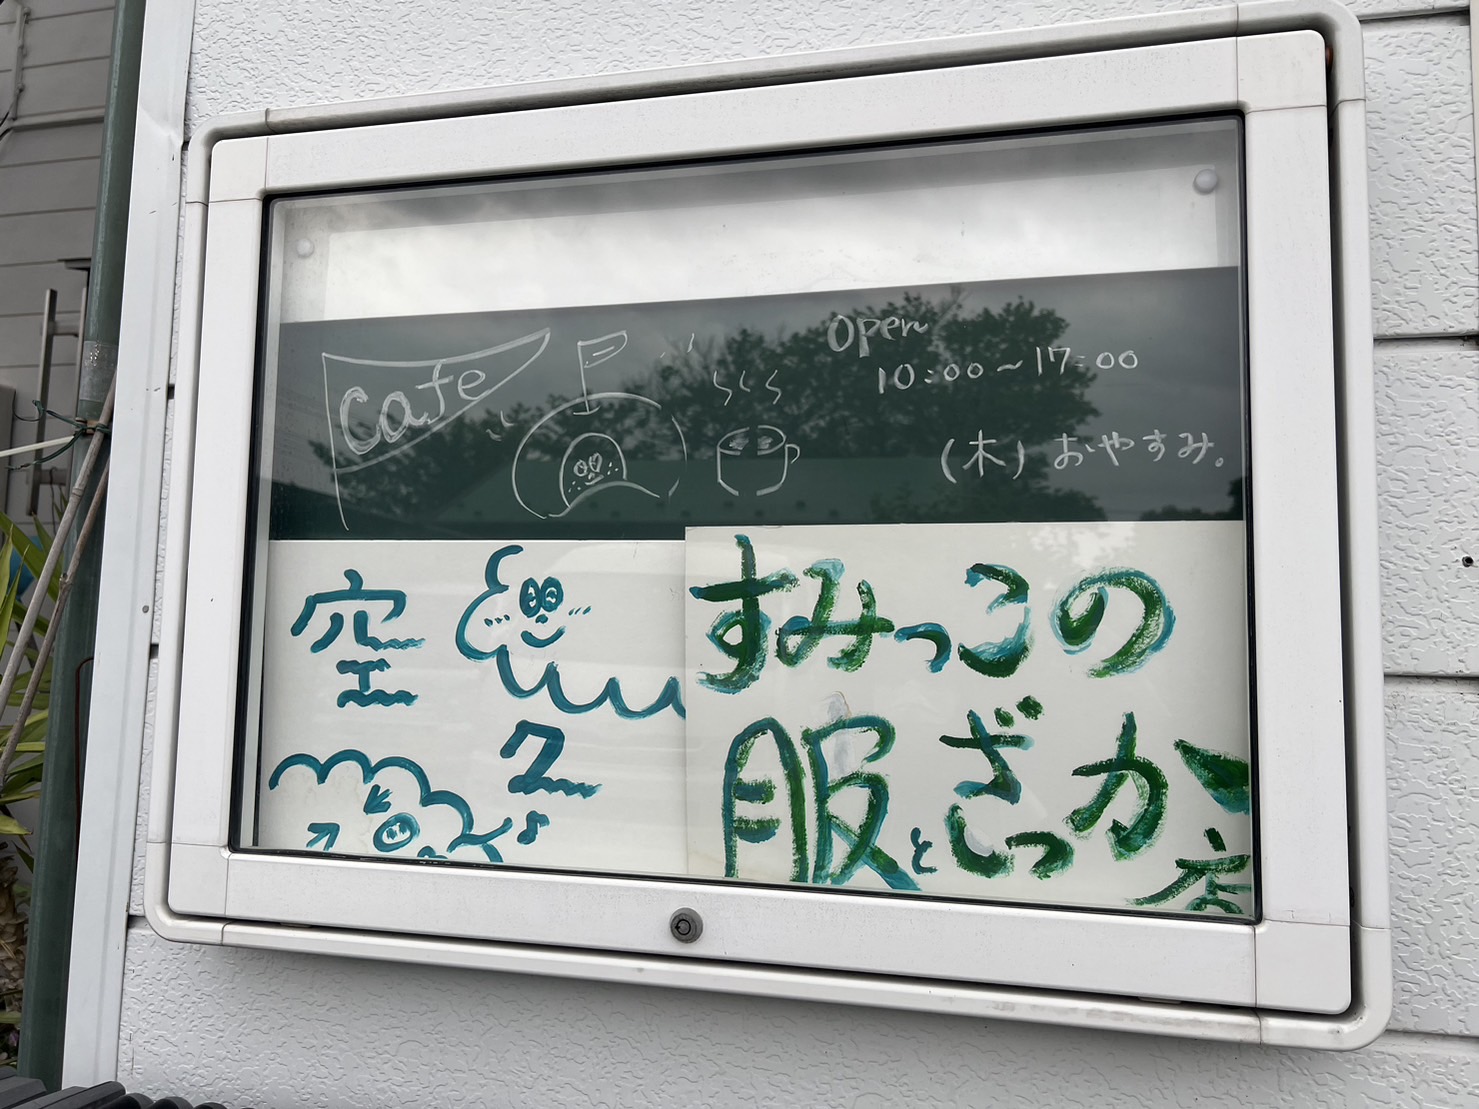 Cafe
Open
10:00~17:00
(木) おやすみ。
空
すみっこの
服とざっか